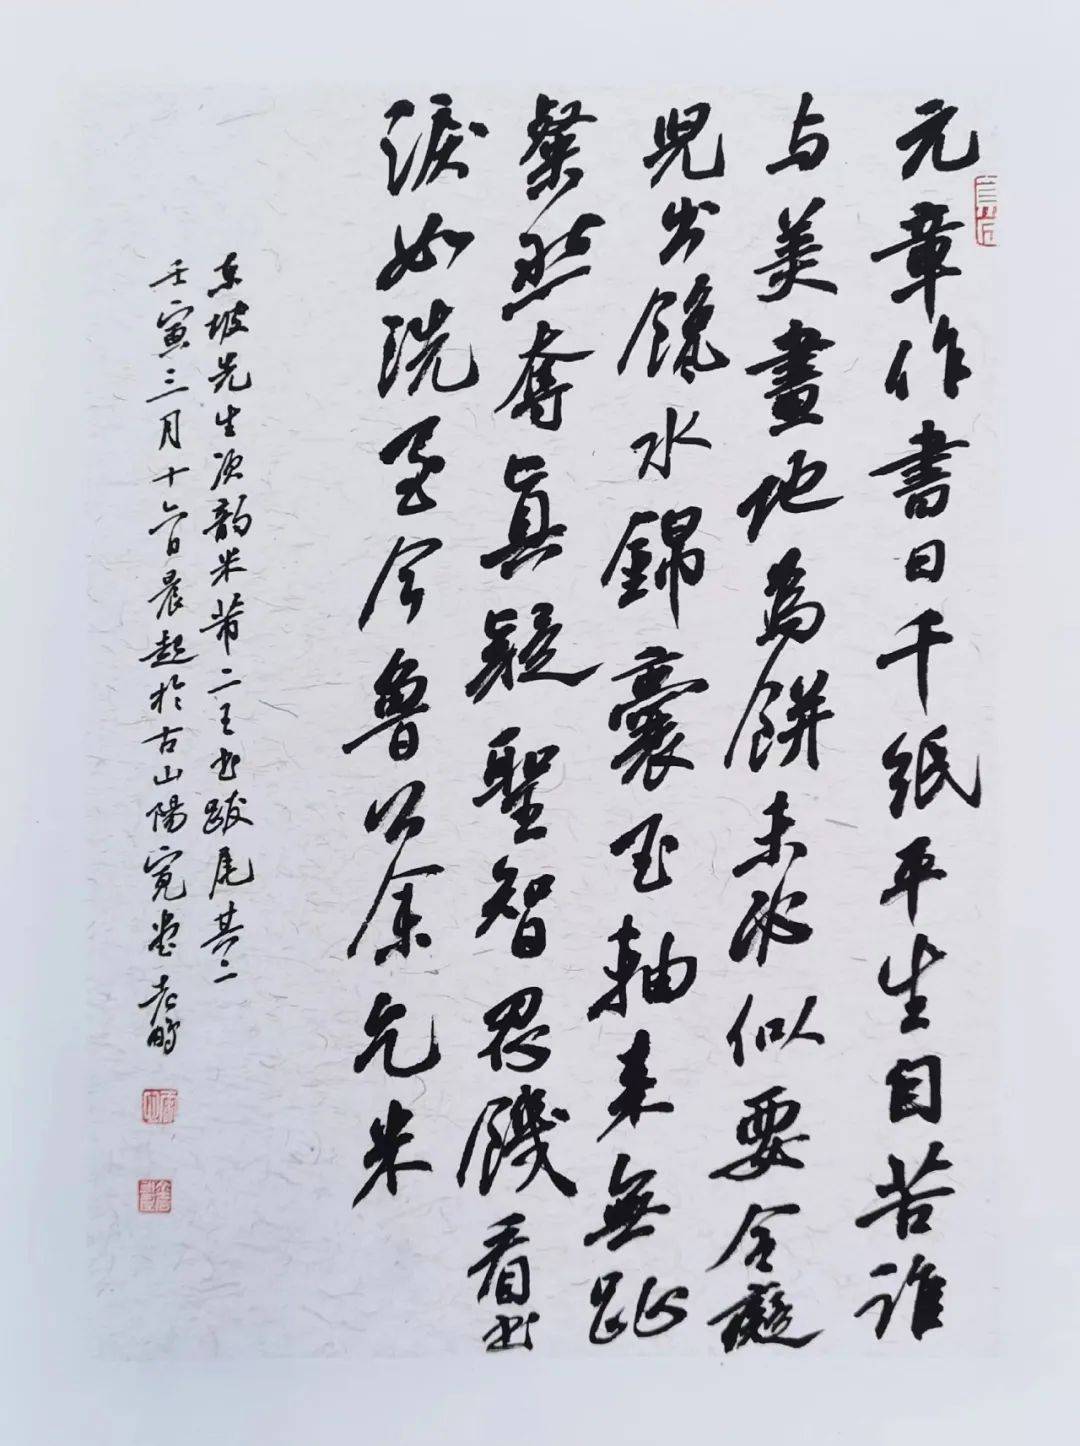 元章作書日千紙平生自苦誰
与美畫地為餅未必似要令癡
兒出饞水錦囊玉軸来無趾
粲然奪真疑聖智忍饑看書
淚如洗至今魯公余乞米
东坡先生次韵米芾二王书跋尾其二
壬寅三月十六日晨起於古山陽寬堂老